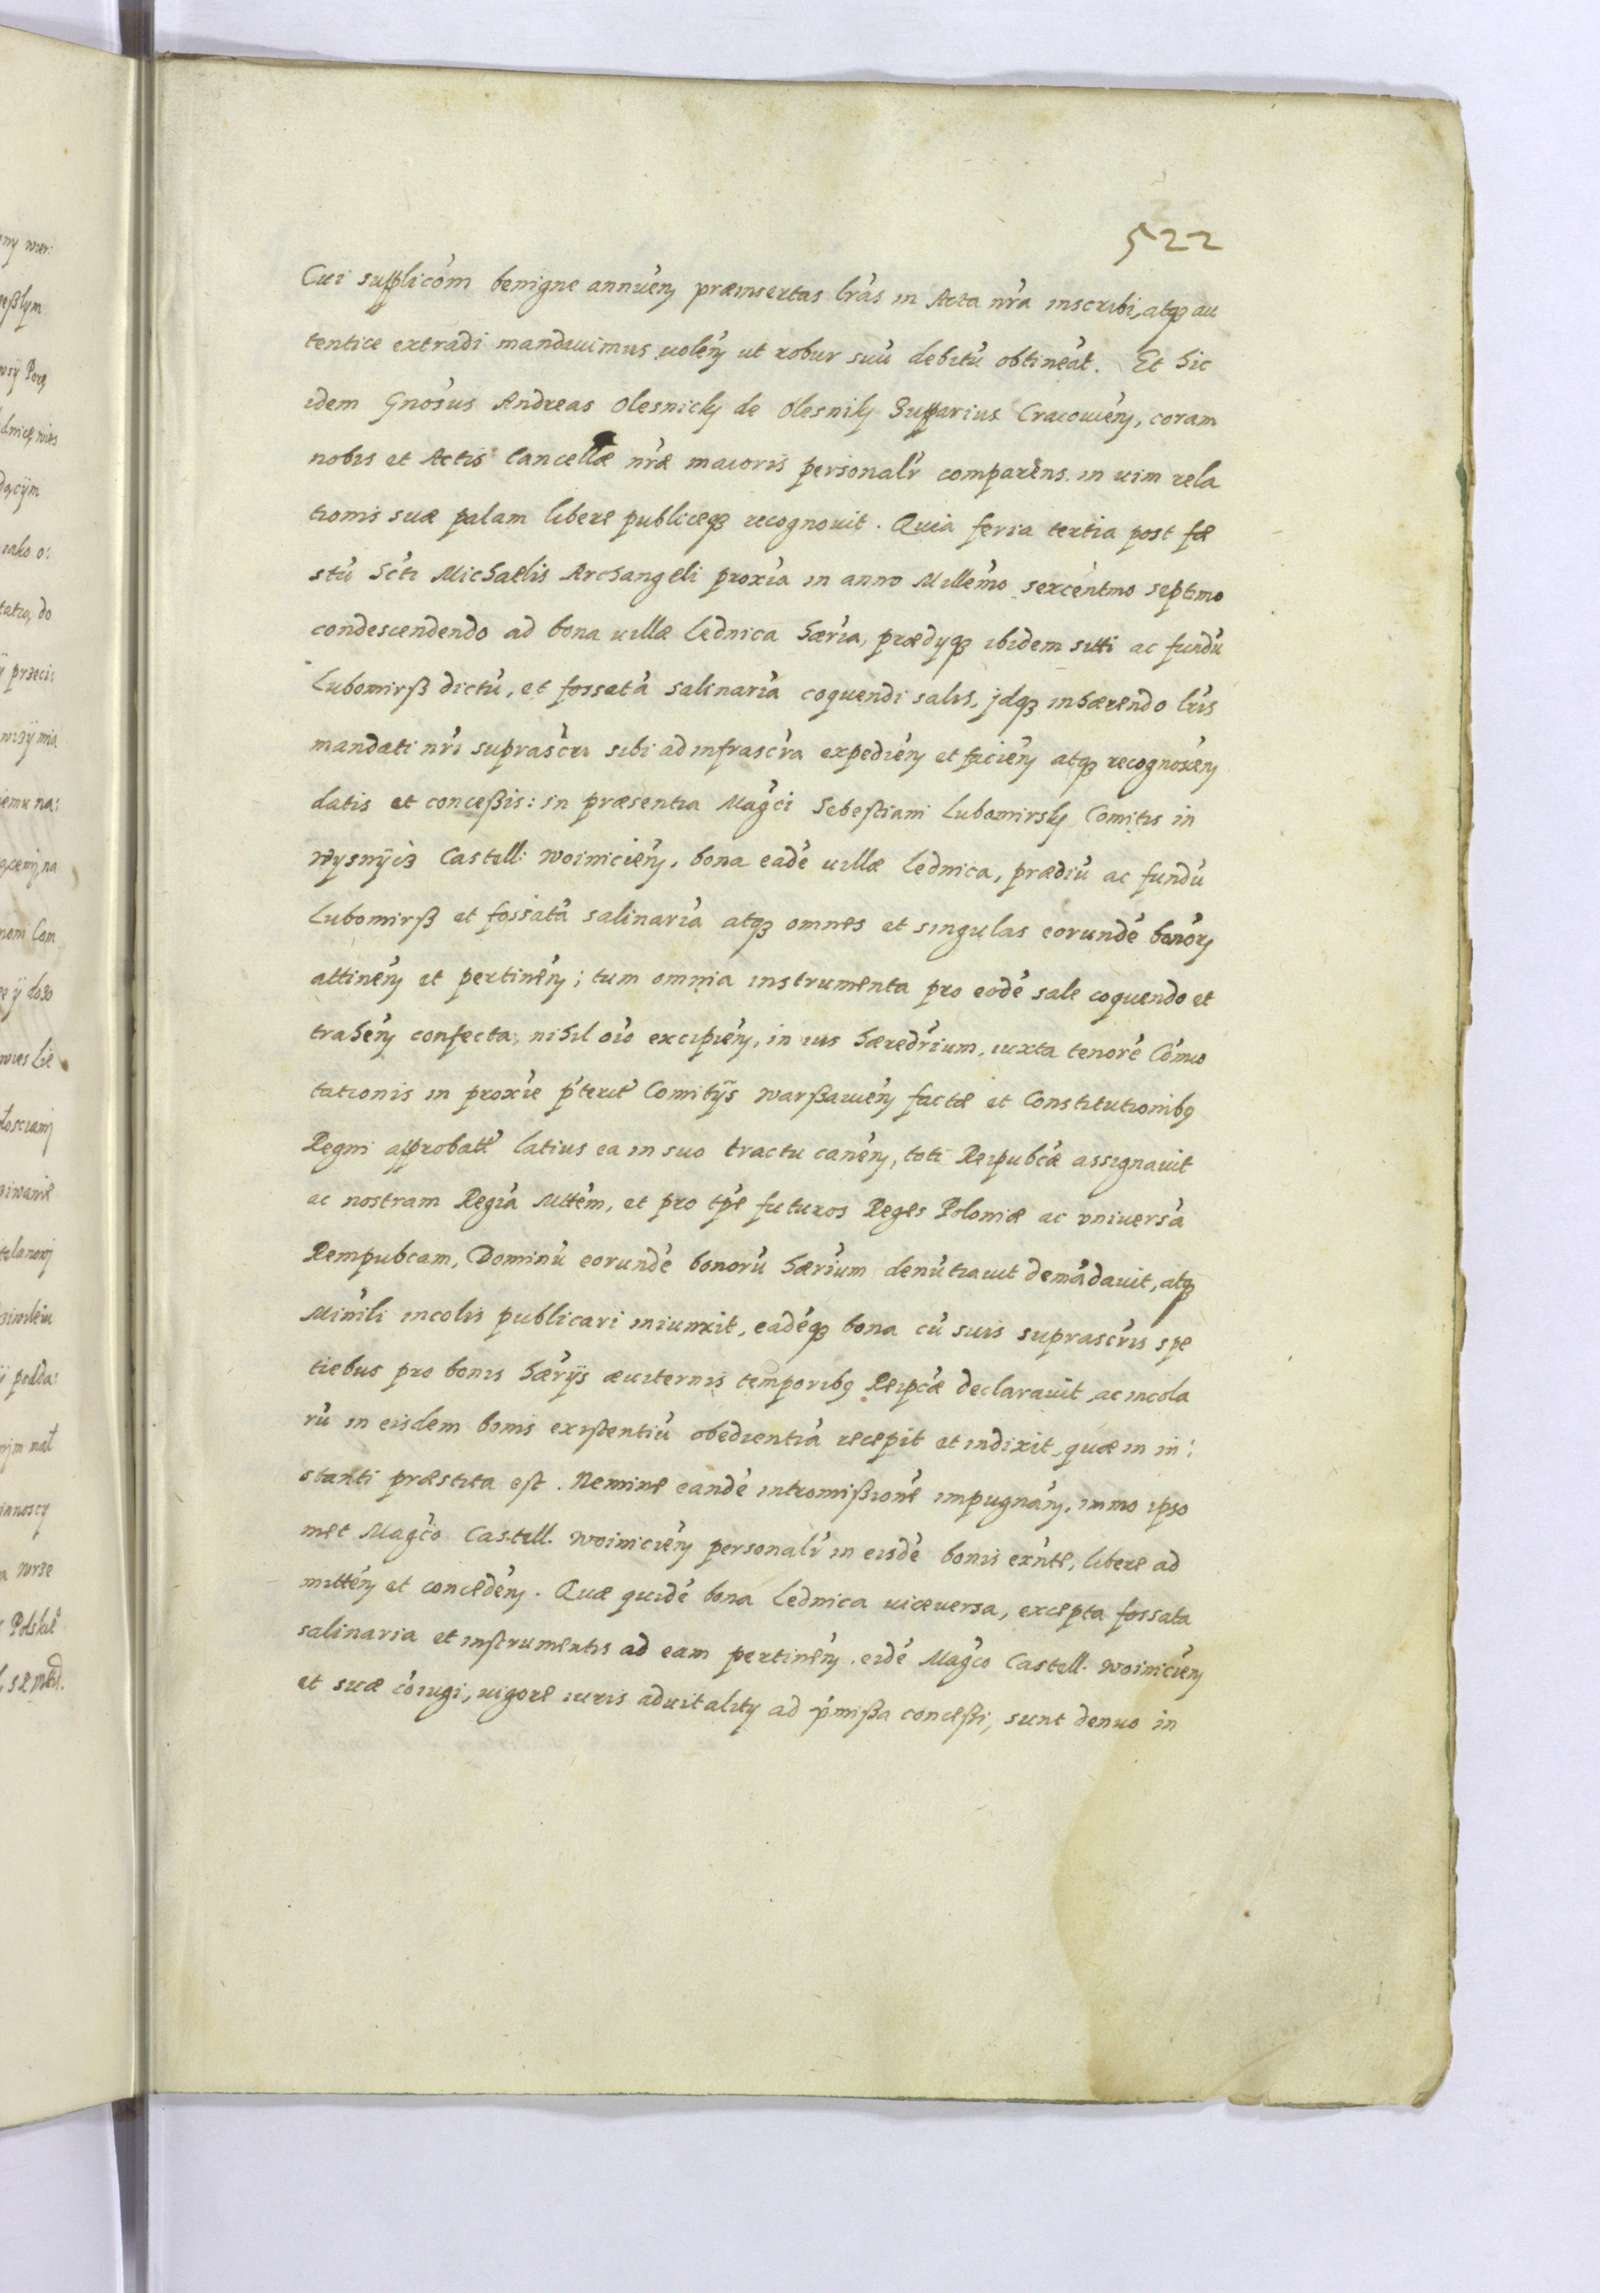 522
Cui supplicóm benigne annuén; præinsertas lrás in Acta nr̃a inscribi, atq; au
tentice extradi mandavimus uolén; ut robur suú debitú obtineát. Et hic
idem Gnósus Andreas Olesnicky de Olesniky Suffarius Cracouién;, coram
nobis et Actis Cancellæ nrǽ maioris personalr̃ comparens. in uim rela
tionis suæ palam libere publiceq; recognouit. Quia feria tertia post fæ
stú Scti Michaelis Archangeli proxia in anno Millémo sexcéntmo septmo
condescendendo ad bona uillæ Lednica hæria, prædyq; ibidem siti ac fundú
Lubomirß dictú, et fossatá salinariá coquendi salis, jdq; inhærendo lris
mandati nri suprascri sibi ad infrascra expedién; et facién; atq; recognoscén;
datis et conceßis: in præsentia Magci Sebestiani Lubomirsky Comitis in
Wysnÿcz Castell: woinicién;, bona eadé uillæ Lednica, prædiú ac fundú
Lubomirß et fossatá salinariá atq; omnes et singulas eorundé bonór;
attinén; et pertinén;; tum omnia instrumenta pro eodé sale coquendo et
trahén; confecta, nihil oío excipién;, in ius hæredrium, iuxta tenoré Cómu
tationis in proxie pterit Comitÿs warßauién; factæ et Constitutionibq
Regni approbatæ latius ea in suo tractu canén;, toti Reipubcæ assignauit
ac nostram Regiá Mttém, et pro tpe futuros Reges Poloniæ ac vniversá
Rempubcam, Dominú eorundé bonorú hærium denútiauit demádavit, atq;
Minili incolis publicari iniunxit, eadéq; bona cú suis suprascris spe
tiebus pro bonis hærÿs æuiternis temporibq Reipcæ declaravit, ac incola
rú in eisdem bonis existentiú obedientiá recepit et indixit, quæ in in:
stanti præstita est. Nemine eandé intromißioné impugnán;, immo ipso
met Magco Castell. woinicién; personalr in eisdé bonis exnte, libere ad
mittén; et concedén;. Quæ quidé bona Lednica uiceversa, excepta fossata
salinaria et instrumentis ad eam pertinén;, eidé Magco Castell. woinicién;
et suæ cóiugi, uigore iuris aduitality ad pmißa conceßi, sunt denuo in